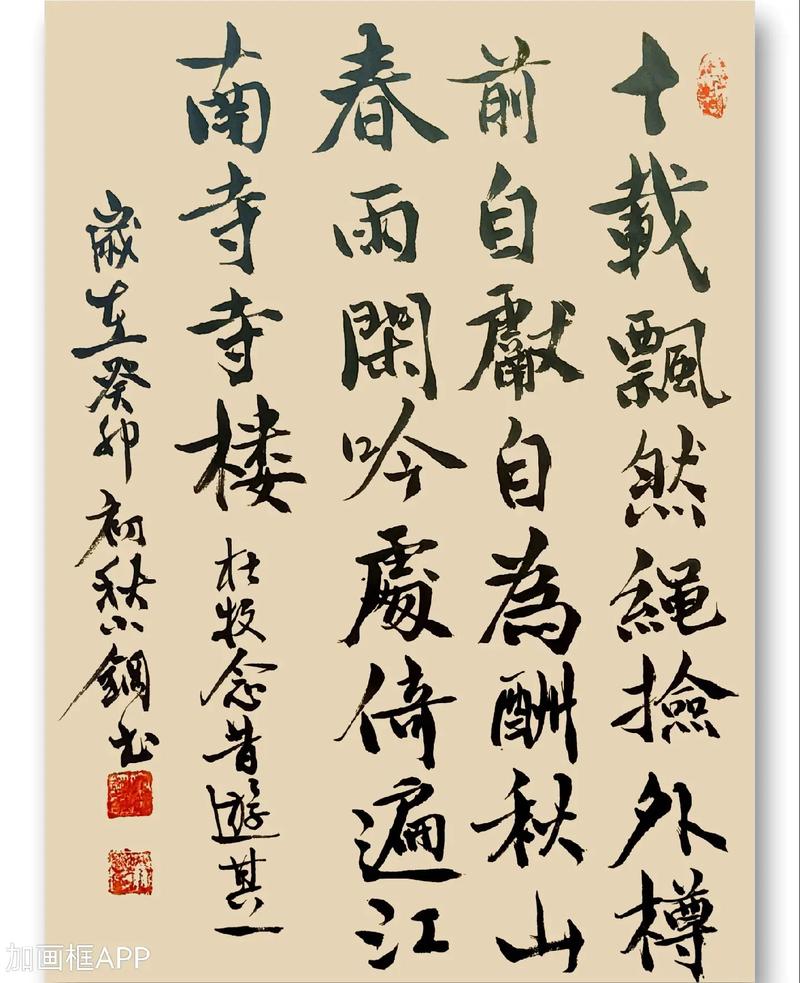 十載飄然繩撿外樽
前自獻自為酬秋山
春雨閑吟處倚遍江
南寺寺楼
杜牧念昔遊其一
歲在癸卯初秋小鋼书
加画框APP